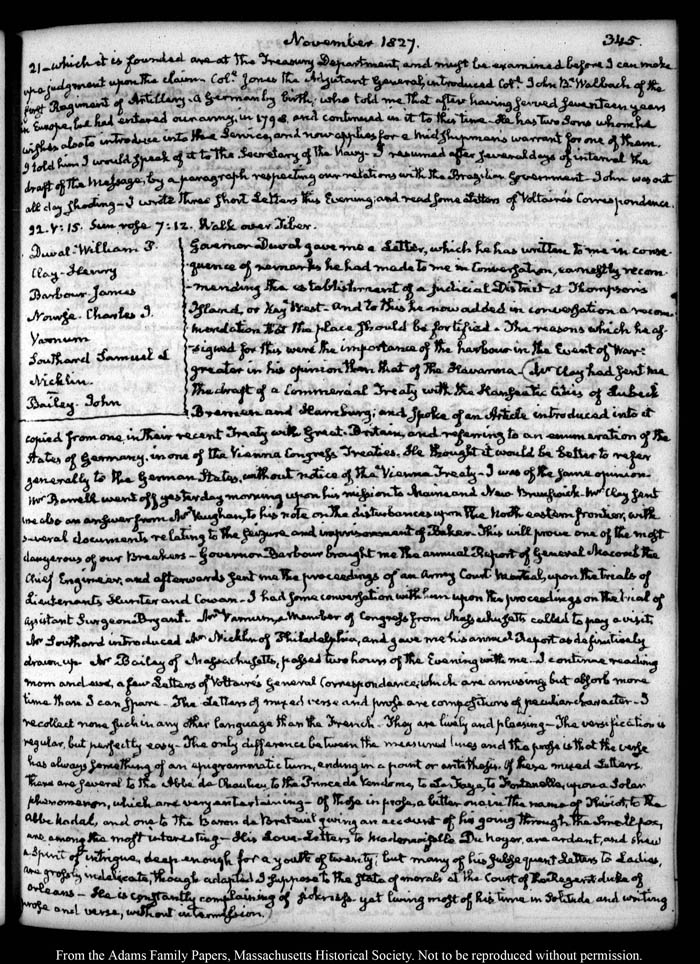 November 1827.
345.
21 - which it is founded are at the Treasury Department, and must be examined before I can make
up a judgment upon the claim - Coll. Jones the Adjutant General, introduced Coll. John Bt. Walbach of the
first Regiment of Artillery. A German by birth; who told me that after having served seventeen years
in Europe, he had entered our army, in 1798, and continued in it to this time. He has two Sons whom he
wishes also to introduce into the Service, and now applies for a Midshipman's warrant for one of them.
I told him I would speak of it to the Secretary of the Navy. I resumed after several days of interval the
draft of the Message, by a paragraph respecting our relations with the Brazilian Government. John was out
all day shooting - I wrote three short Letters this Evening; and read some Letters of Voltaire's Correspondence.
22. V: 15. Sun rose 7:12. Walk over Tiber.
Duval. William P.
Clay. Henry
Barbour James
Nourse. Charles J.
Varnum
Southard Samuel L
Nicklin.
Bailey. John
Governor Duval gave me a Letter, which he has written to me in conse-
quence of remarks he had made to me in Conversation, earnestly recom-
-mending the establishment of a judicial District at Thompson's
Island, or Key West - And to this he now added in conversation a recom-
mendation that the place should be fortified. The reasons which he as-
signed for this were the importance of the harbour in the Event of War:
greater in his opinion than that of the Havanna - Mr Clay had sent me
the draft of a Commercial Treaty with the Hanseatic Cities of Lubeck
Bremen and Hamburg; and spoke of an Article introduced into it
copied from one, in their recent Treaty with Great-Britain, and referring to an enumeration of the
States of Germany, in one of the Vienna Congress Treaties. He thought it would be better to refer
generally to the German States, without notice of the Vienna Treaty - I was of the same opinion.
Mr Barrell went off yesterday morning upon his mission to Maine and New Brunswick. Mr Clay sent
me also an answer from Mr Vaughan, to his note on the disturbances upon the North eastern frontier, with
several documents relating to the seizure and imprisonment of Baker. This will prove one of the most
dangerous of our Breakers - Governor Barbour brought me the annual Report of General Macomb the
Chief Engineer, and afterwards sent me the proceedings of an Army Court Martial, upon the trials of
Lieutenants Hunter and Cowan. - I had some conversation with him upon the proceedings on the trial of
assistant Surgeon Bryant. Mr Varnum, a Member of Congress from Massachusetts called to pay a visit.
Mr Southard introduced Mr Nicklin of Philadelphia, and gave me his annual Report as definitively
drawn up. Mr Bailey of Massachusetts, passed two hours of the Evening with me. I continue reading
morn and eve, a few Letters of Voltaire's General Correspondence, which are amusing but absorb more
time than I can spare. The Letters of mixed verse and prose are compositions of peculiar character - I
recollect none such in any other language than the French - They are lively and pleasing - The versification is
regular, but perfectly easy - The only difference between the measured lines and the prose is that the verse
has always something of an epigrammatic turn, ending in a point or antithesis. Of these mixed Letters,
there are several to the Abbé de Chaulieu, to the Prince de Vendome, to La Faye, to Fontenelle, upon a Solar
phenomenon, which are very entertaining. Of those in prose, a bitter one in the name of Thiriot, to the
Abbé Nadal, and one to the Baron de Breteuil giving an account of his going through the Small pox,
are among the most interesting - His Love-Letters to Mademoiselle Du Noyer, are ardent, and shew
a Spirit of intrigue, deep enough for a youth of twenty; but many of his subsequent Letters to Ladies,
are grossly indelicate, though adapted I suppose to the State of morals at the Court of the Regent duke of
Orleans - He is constantly complaining of sickness yet living most of his time in Solitude, and writing
prose and verse, without intermission.
From the Adams Family Papers, Massachusetts Historical Society. Not to be reproduced without permission.